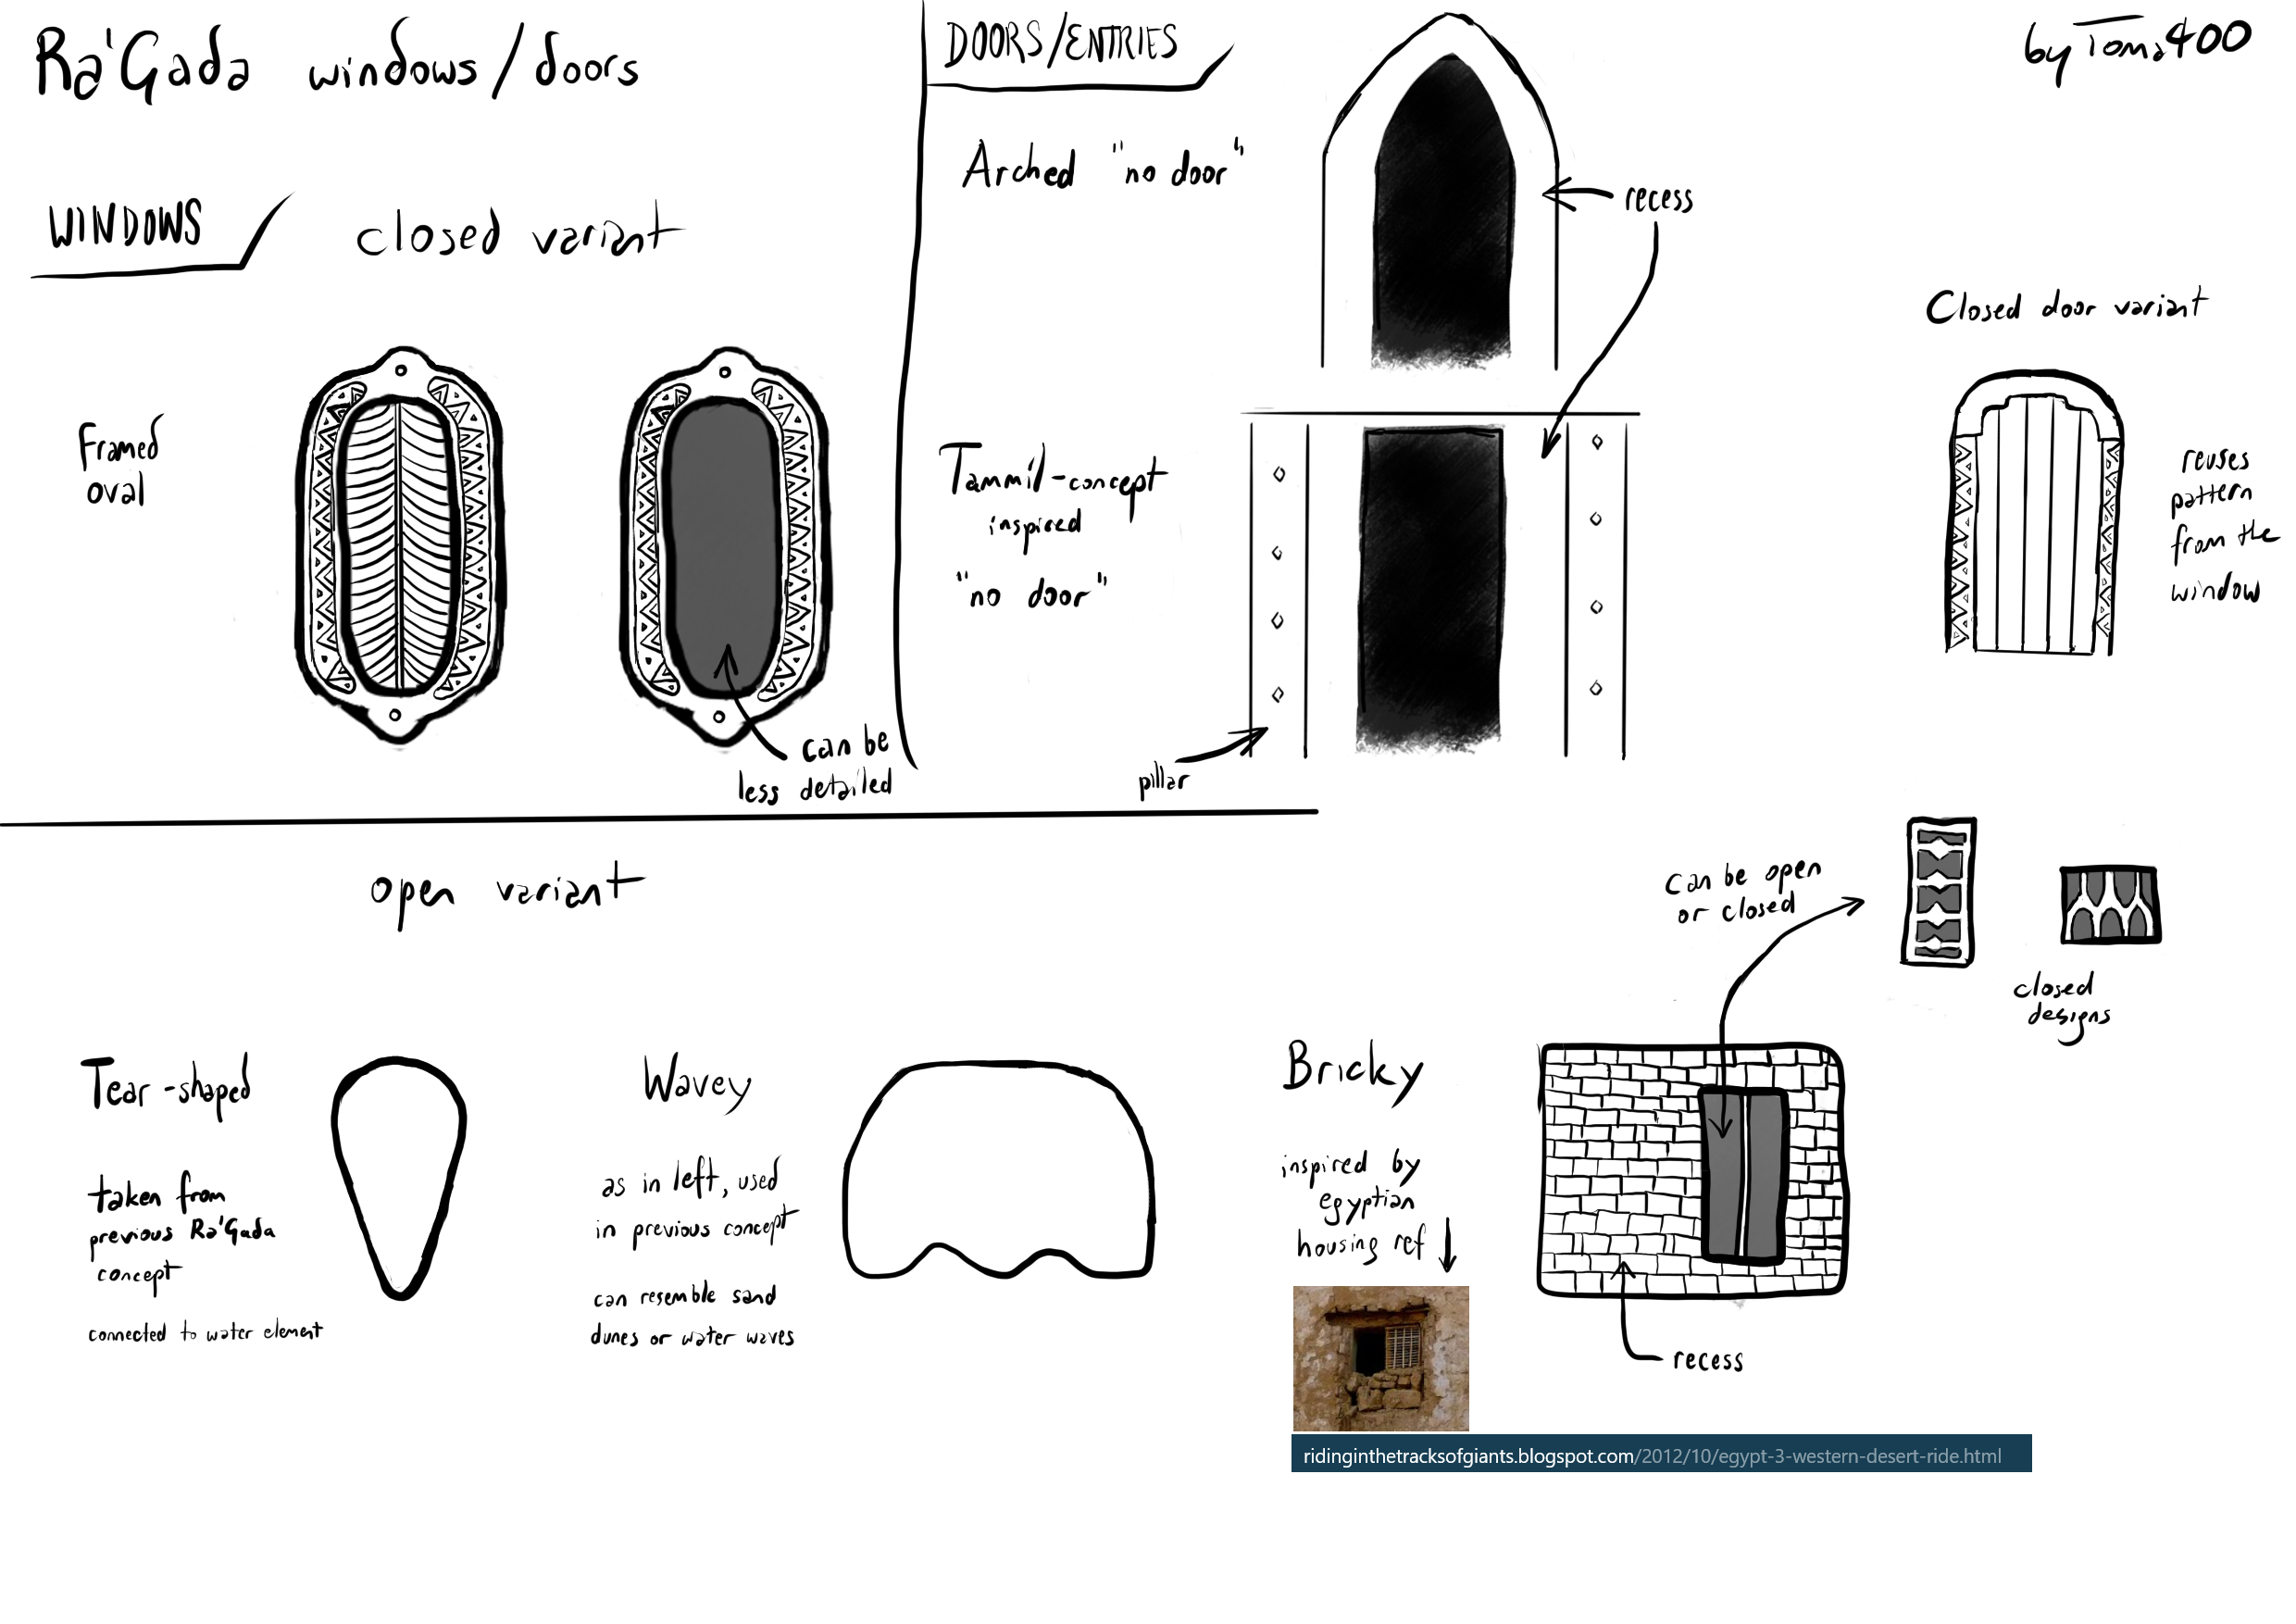 Ra'Gada windows/doors
by Toma400
WINDOWS
closed variant
Framed
oval
can be
less detailed
DOORS/ENTRIES
Arched "no door"
recess
Tammil-concept
inspired
"no door"
pillar
Closed door variant
reuses
pattern
from the
window
open variant
Tear-shaped
taken from
previous Ra'Gada
concept
connected to water element
Wavey
as in left, used
in previous concept
can resemble sand
dunes or water waves
Bricky
inspired by
egyptian
housing ref
can be open
or closed
closed
designs
recess
ridinginthetracksofgiants.blogspot.com/2012/10/egypt-3-western-desert-ride.html